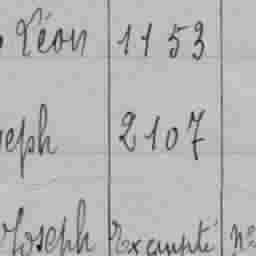 Léon 1153
seph 2107
Joseph Exempté no